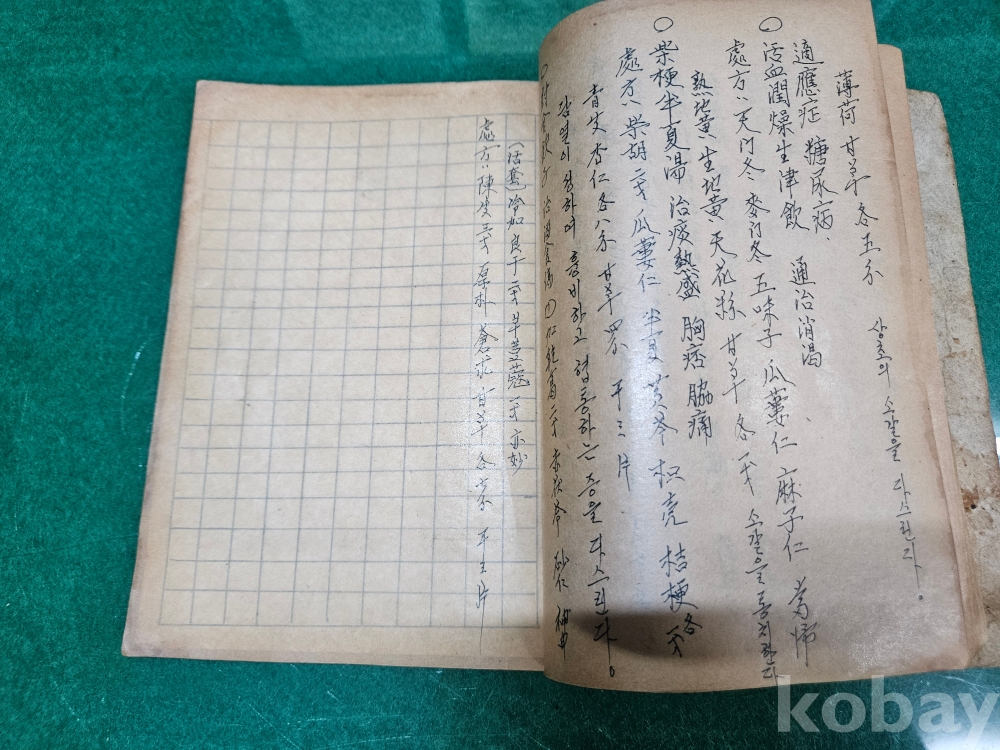 薄荷 甘草 各五分 상초의 소갈을 다스린다.
適應症 糖尿病、
○ 活血潤燥生津飲 通治消渴
處方 天門冬 麥門冬 五味子 瓜蔞仁 麻子仁 當帰
熟地黃 生地黃 天花粉 甘草 各一戈 소갈을 통치한다
○ 柴梗半夏湯 治痰熱盛 胸痞脇痛
處方 柴胡 二戈 瓜蔞仁 半夏 黃芩 枳壳 桔梗 各一戈
青皮 杏仁 各八分 甘草 四分 干三片
담열이 성하여 흉비하고 협통하는 증을 다스린다。
治湿 赤茯苓 砂仁 神曲
(活套) 冷加良干 一戈 草荳蔲 一戈 亦妙
處方 陳皮 厚朴 蒼朮 甘草 各 干三片
kobay